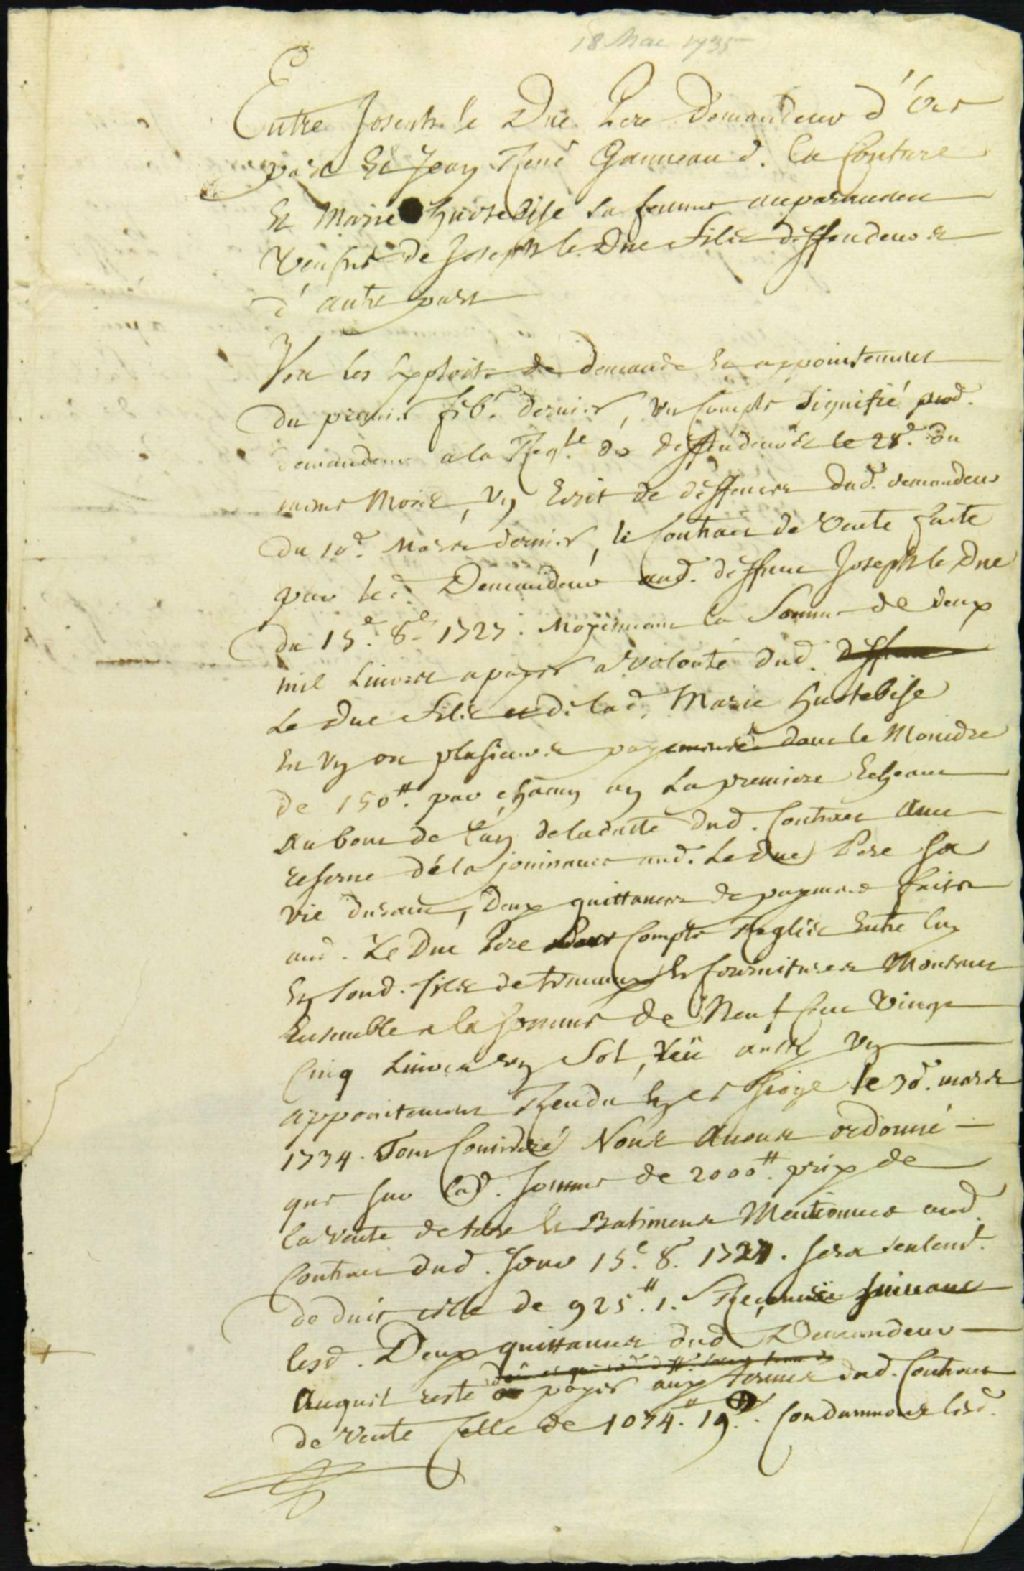 18 Mai 1735
Entre Joseph le Duc Pere Demandeur d'Une
part Et Jean René Ganneau d. La Couture
Et Marie Hurtebise sa femme auparavant
Veufve de Joseph le Duc fils deffendeurs
d'autre part
Veu les Exploits de demande Et appointement
du premier feb. dernier, Un Compte signifié
demandeur a la Reqte des deffendeurs le 28e. du
mesme Mois, Un Ecrit de deffenses dud. demandeur
du 10e. Mars dernier, le Contract de Vente faite
par led. Demandeur aud. deffunt Joseph le Duc
du 15e. 8e. 1727. Moyennant la Somme de deux
mil Livres a payer a volonté dud. deffunt
Le Duc fils et de lad. Marie Hurtebise
En Un ou plusieurs payements dont le Moindre
de 150tt. par chacun an La premiere Echeance
Au bout de l'an de la datte dud. Contract avec
reserve de la jouissance aud. Le Duc Pere sa
vie durant, Deux quittances de payment faites
aud. Le Duc Pere Compte Reglée Entre luy
Et sond. fils de travaux Et fournitures Montant
Ensemble a la somme de Neuf Cent Vingt
Cinq Livres un Sol, Veu aussy Un
appointement Rendu le 30. mars
1734. Tout Consideré Nous Avons ordonné
que sur lad. somme de 2000tt. prix de
la Vente de terre Et Batiments Mentionnés aud.
Contract dud. Jour 15e. 8. 1727. sera seulemt.
deduit celle de 925tt. 1. suivant
lesd. Deux quittances dud. Demandeur
Auquel reste payer aux termes dud. Contract
de Vente Celle de 1074.tt 19. Condamnons lesd.